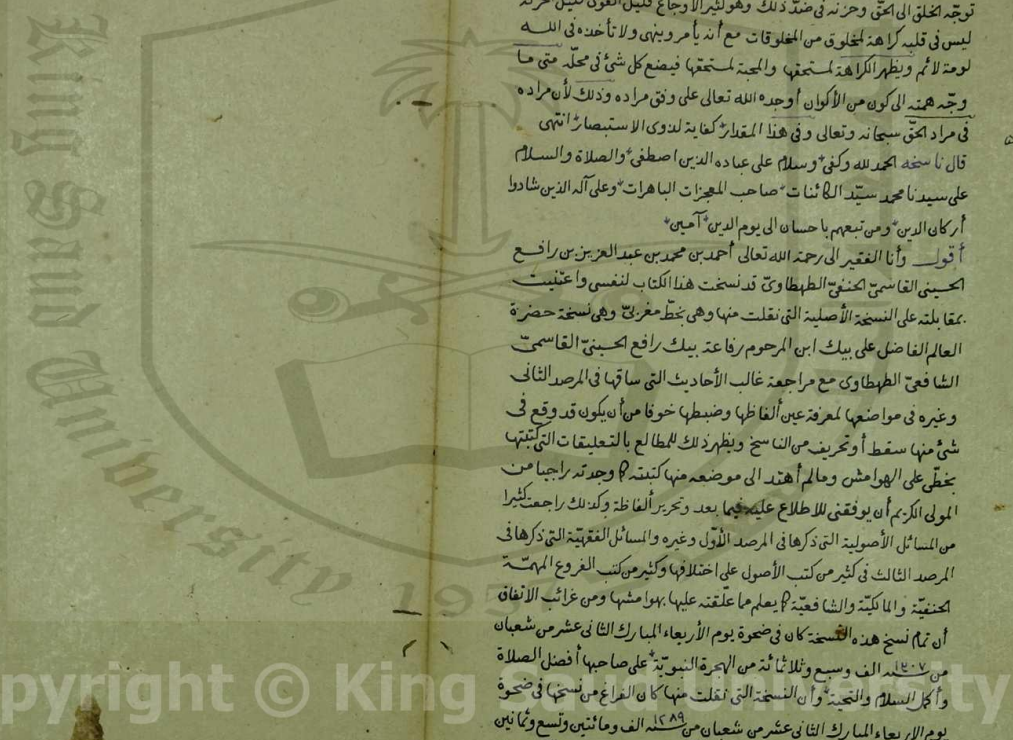 توجّه الخلق الى الحقّ وحزنه فى ضدّ ذلك وهو كثير الأوجاع قليل القوى قليل الحركة
ليس فى قلبه كراهة لمخلوق من المخلوقات مع أنه يأمر وينهى ولا تأخذه فى الله
لومة لائم ويظهر الكراهة لمستحقها والمحبة لمستحقها فيضع كل شئ فى محلّه متى ما
وجّه همته الى كون من الأكوان أوجده الله تعالى على وفق مراده وذلك لأن مراده
فى مراد الحقّ سبحانه وتعالى وفى هذا المقدار كفاية لذوى الاستبصار انتهى
قال ناسخه الحمد لله وكفى وسلام على عباده الذين اصطفى والصلاة والسلام
على سيدنا محمد سيّد الكائنات صاحب المعجزات الباهرات وعلى آله الذين شادوا
أركان الدين ومن تبعهم باحسان الى يوم الدين آمين
أقول وأنا الفقير الى رحمة الله تعالى أحمد بن محمد بن عبد العزيز بن رافع
الحسينى القاسمىّ الحنفىّ الطهطاوىّ قد نسخت هذا الكتاب لنفسى واعتنيت
بمقابلته على النسخة الأصلية التى نقلت منها وهى بخطّ مغربىّ وهى نسخة حضرة
العالم الفاضل على بيك ابن المرحوم رفاعة بيك رافع الحسينىّ القاسمىّ
الشافعىّ الطهطاوى مع مراجعة غالب الأحاديث التى ساقها فى المرصد الثانى
وغيره فى مواضعها لمعرفة عين ألفاظها وضبطها خوفا من أن يكون قد وقع فى
شئ منها سقط أو تحريف من الناسخ ويظهر ذلك للمطالع بالتعليقات التى كتبتها
بخطّى على الهوامش ومالم أهتد الى موضعه منها كتبته كما وجدته راجيا من
المولى الكريم أن يوفقنى للاطلاع عليه فيما بعد وتحرير ألفاظه وكذلك راجعت كثيرا
من المسائل الأصولية التى ذكرها فى المرصد الأوّل وغيره والمسائل الفقهيّة التى ذكرها فى
المرصد الثالث فى كثير من كتب الأصول على اختلافها وكثير من كتب الفروع المهمّة
الحنفيّة والمالكيّة والشافعيّة كما يعلم مما علّقته عليها بهوامشها ومن غرائب الاتفاق
أن تمام نسخ هذه النسخة كان فى ضحوة يوم الأربعاء المبارك الثانى عشر من شعبان
من سنة ١٣٠٧ الف وسبع وثلاثمائة من الهجرة النبويّة على صاحبها أفضل الصلاة
وأكمل السلام والتحية وأن النسخة التى نقلت منها كان الفراغ من نسخها فى ضحوة
يوم الاربعاء المبارك الثانى عشر من شعبان من سنة ١٢٨٩ الف ومائتين وتسع وثمانين
King Saud University
1957
pyright © King Saud University